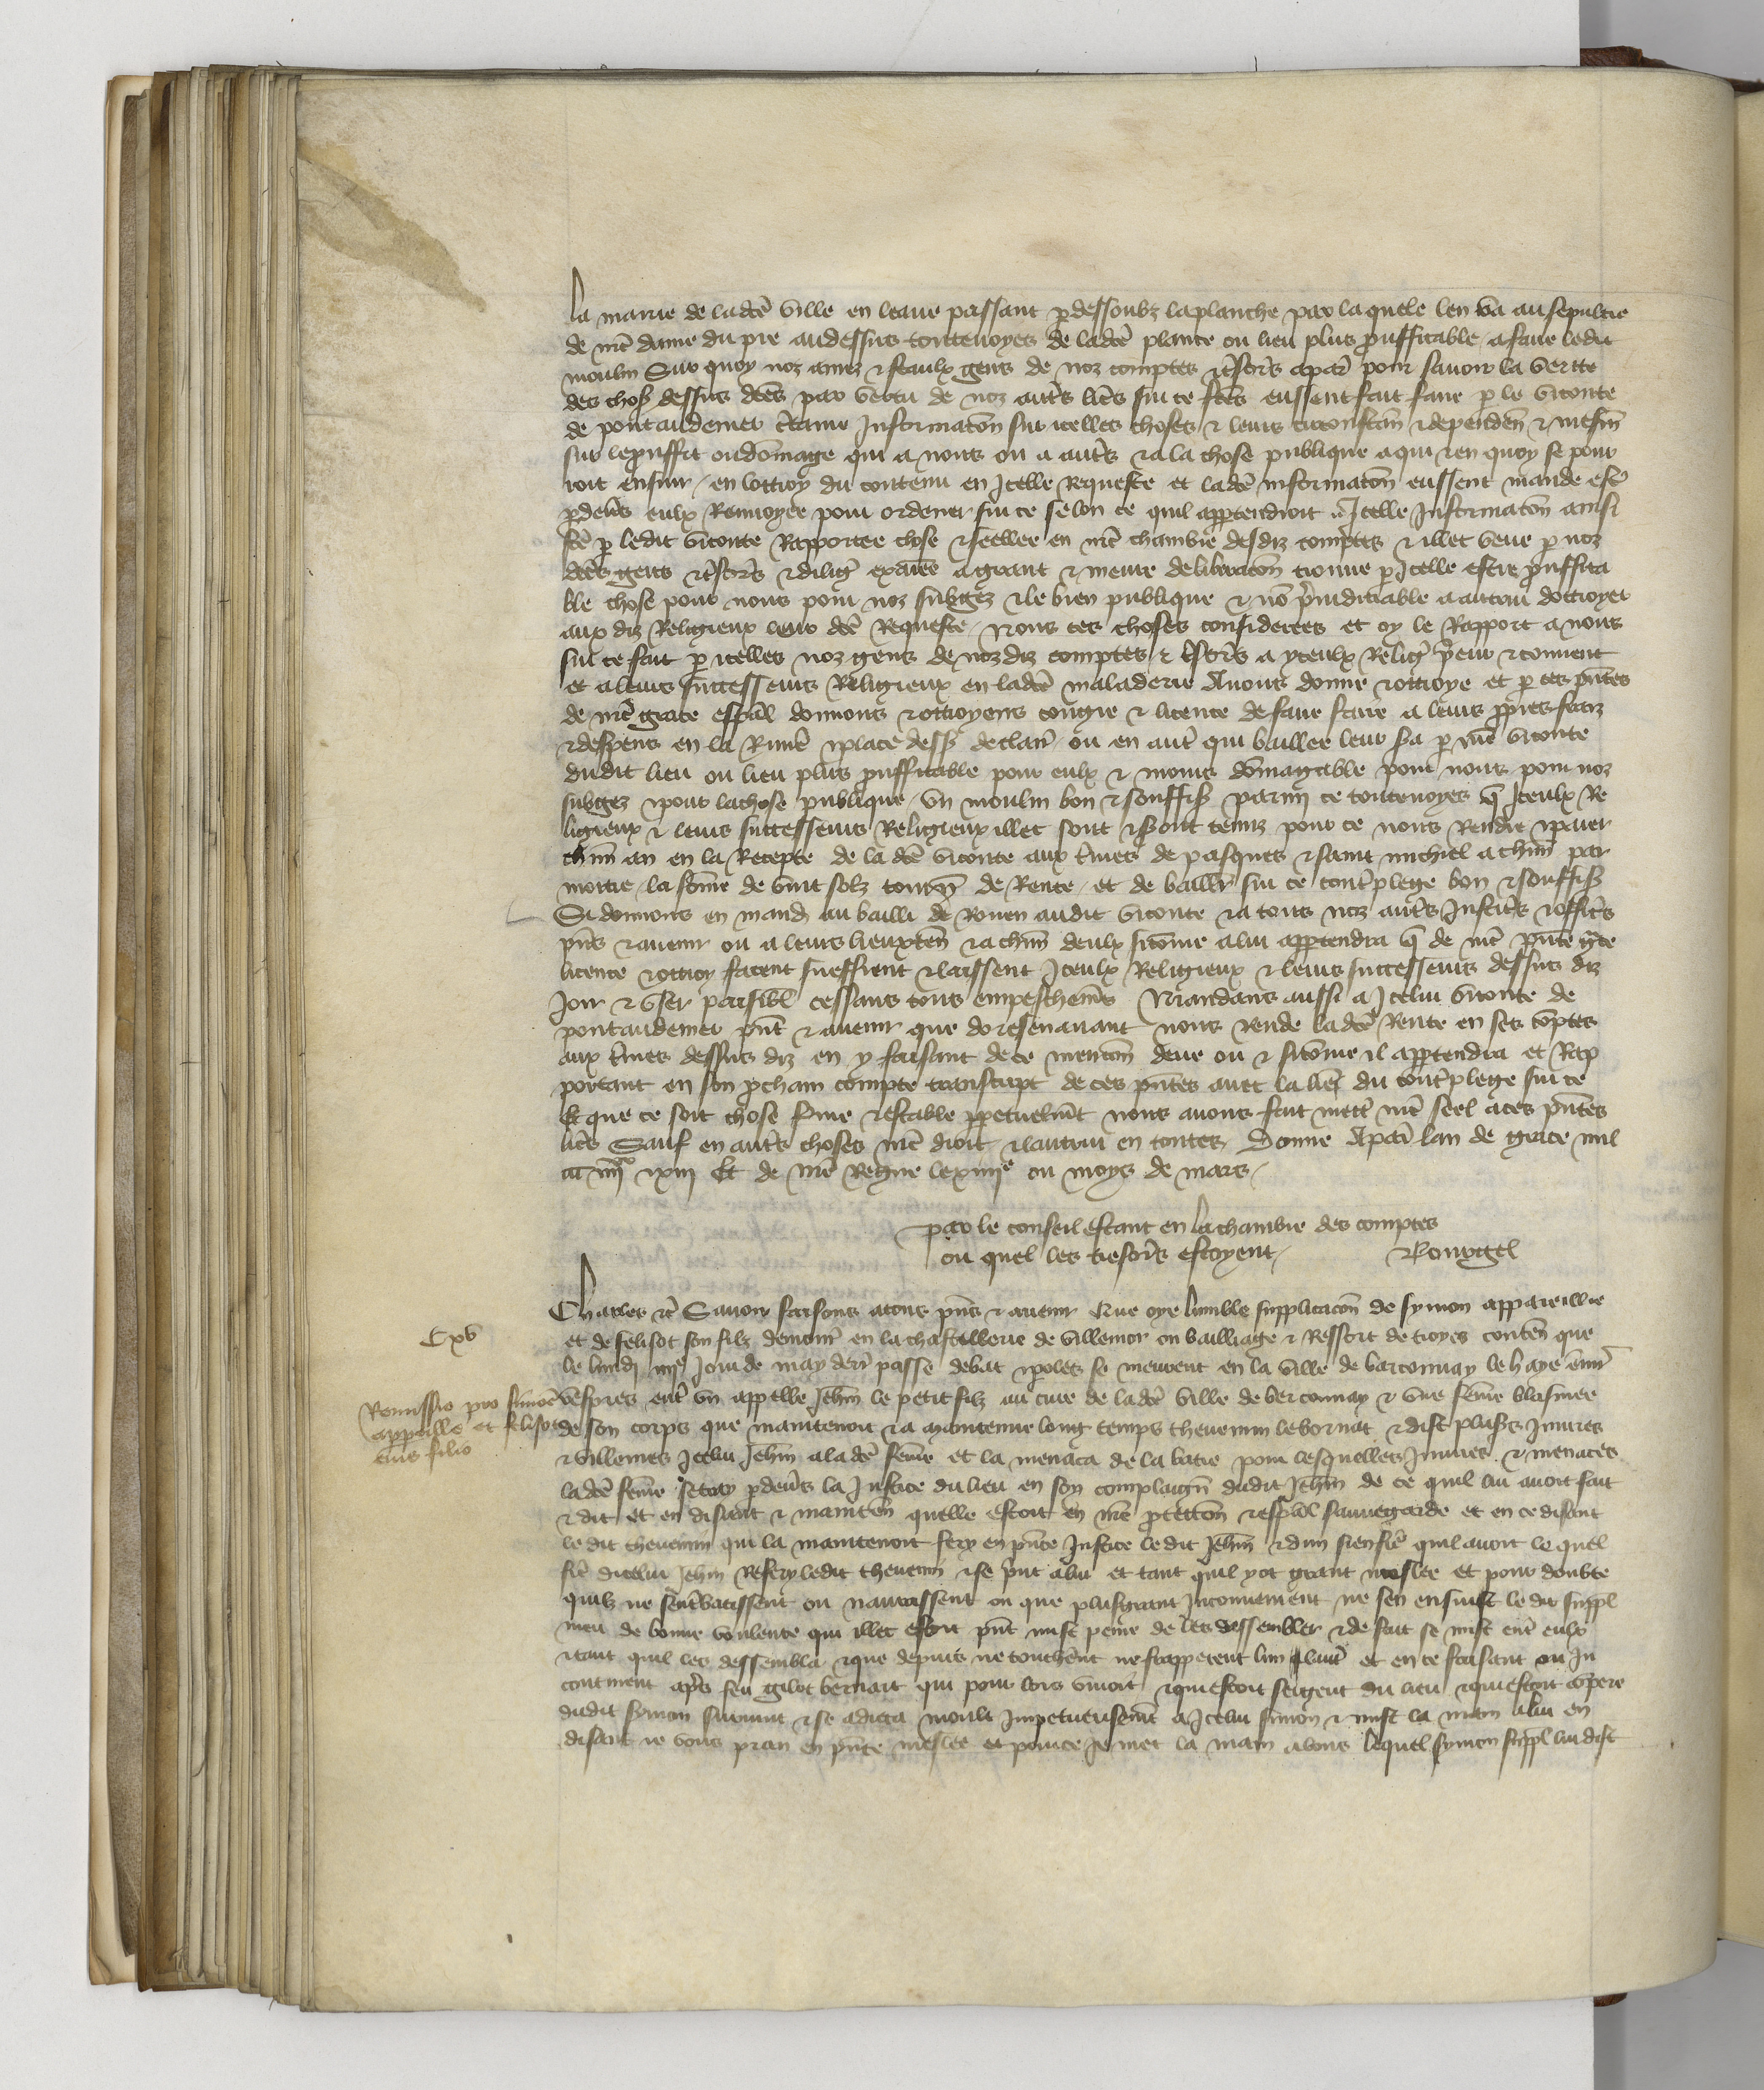 la mairie de ladcē ville en leaue passant p dessoubz laplanche par laquele len va au sepulcre
de nrē dame du pre audessus toutenoyes de ladcē plance ou lieu plus prouffitable a faire ledit
moulin Sur quoy noz amez & feaulx gens de noz comptes & tresors a par pour sauoir la verite
des chos dessus dcēs par vertu de noz autrs lrēs sur ce fcēs eussent fait faire p le viconte
de pontaudemer ctaine Informacon sur icelles choses & leurs circonstan & dependen & mesm
sur le prouffit ou dommage qui a nous ou a autrs & a la chose publique a qui & en quoy se pour
roit ensuir / en lottroy du contenu en Icelle Requeste et ladcē informacon eussent mande estr
p deurs eulx Renuoyee pour ordener sur ce selon ce quil appartendroit Icelle Informacon ainsi
fcē p ledit viconte Rapportee close & seellee en nrē chambre desdiz comptes & illec veue p noz
dcēs gens & tresors & dilig examee a grant & meure deliberacon trouue p Icelle estre prouffita
ble chose pour nous pour noz subgez & le bien publique & nō preiudiciable a autrui dottroyer
aux diz Religieux leur dcē Requeste Nous ces choses considerees et oy le Rapport a nous
sur ce fait p icelles noz gens de noz diz comptes & tresors a yceulx Relig prieur & couuent
et a leurs successeurs Religieux en ladcē maladerie Auons donne & ottroye et p ces pntes
de nrē grace espāl donnons & ottroyens congie & licence de faire faire a leurs ppres fraiz
& despens en la Riuie & place dess declaire ou en autr qui baillee leur sa p nrē viconte
dudit lieu ou lieu plus prouffitable pour eulx & moins dommagable pour nous pour noz
subgez & pour lachose publique vn moulin bon & souffis parmi ce toutenoyes q Iceulx Re
ligieux & leurs successeurs Religieux illec sont & sont tenuz pour ce nous Rendre & paier
chun an en la Recepte de la dcē viconte aux times de pasques & saint michiel a chun par
moitie la some de vint solz tourn de Rente et de bailler sur ce contreplege bon & souffis
Si donnons en mand au bailli de Rouen audit viconte & a tous noz autrs Justiciers & officrs
pns & auenir ou a leurs lieuxten & a chun deulx si comme a lui appartendra q de nrē pnte grace
licence & ottroy facent sueffrent & laissent Iceulx Religieux & leurs successeurs dessus diz
Joir & vser paisibl cessans tous empeschemes Mandans aussi a Icelui viconte de
pontaudemer pnt & auenir que doresenauant nous Rende ladcē Rente en ses comptes
aux times dessus diz en y faisant de ce mencon deue ou & si comme il appartendra et Rap
portant en son pchain compte transcript de ces pntes auec la lrē du contreplege sur ce
Et que ce soit chose ferme & estable ppetuelmt nous auons fait mettr nrē seel a ces pntes
lrēs Sauf en autrs choses nrē droit & lautrui en toutes Donne A par lan de grace mil
ccc iiiixx & xiii Et de nrē Regne le xiiiie ou moys de mars

par le conseil estant en la chambre des comptes
ou quel les tresors estoyent

Cxv
Remissio pro simone
appaille et felisot
eius filio

Charles etc Sauoir faisons a tous pns & auenir Nue oye lumble supplicacon de symon appareillie
et de felisot son filz demour en la chastellerie de villemor ou bailliage & Ressort de troyes conten que
le lundi iiie Jour de may derr passe debat & poles se meurent en la ville de barconnay le h aye enuir
vespres entr vn appelle Jehan le petit filz au cure de ladcē ville de berconnay & vne feme blasmee
de son corps que maintenoit & a maintenue long temps theuenin lebornat & dist pluss Iniures
& villenies Icelui Jehan a ladcē feme et la menaca de la batre pour lesquelles Iniures & menaces
ladcē feme se p deurs la Justice du lieu en soy complaign dudit Jehan de ce quil lui auoit fait
& dit et en disant & mainten quelle estoit en nrē proteccon & espāl sauuegarde et en ce disant
le dit theuenin qui la maintenoit fery en pnce Justice le dit Jehan & dun sien frē quil auoit le quel
frē dicelui Jehan Refery ledit theuenin & se prit a lui et tant quil y ot grant meslee et pour doubte
quilz ne sentrebatissent ou naurassent ou que plusgrant Inconuenient ne sen ensuist le dit suppl
meu de bonne voulente qui illec estoit pnt mist peine de les dessembler & de fait se mist entr eulx
& tant quil les dessembla & que depuis ne touchent ne frapperent lun lautr et en ce faisant ou In
continent aprs feu gilot bernart qui pour lors viuoit & qui estoit sergent du lieu & qui estoit compere
dudit symon suruint & se adreca moult Impetueusemt a Icelui simon & mist la main a lui en
disant ie vous pran en pnte meslee et pource ie met la main a vous lequel symon suppl lui dist